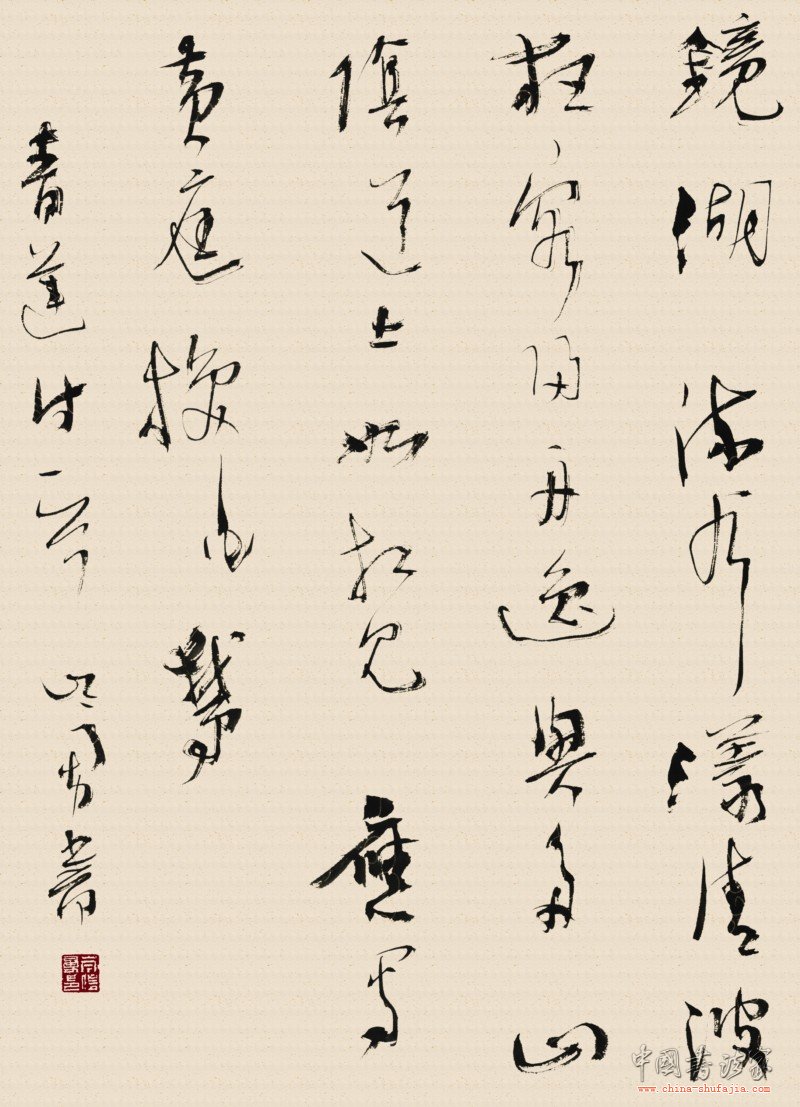 鏡湖流水漾清波
狂客歸舟逸興多山
陰道士如相見應寫
黃庭換白鵝
青蓮詩一首 書
中國書法家
www.china-shufajia.com